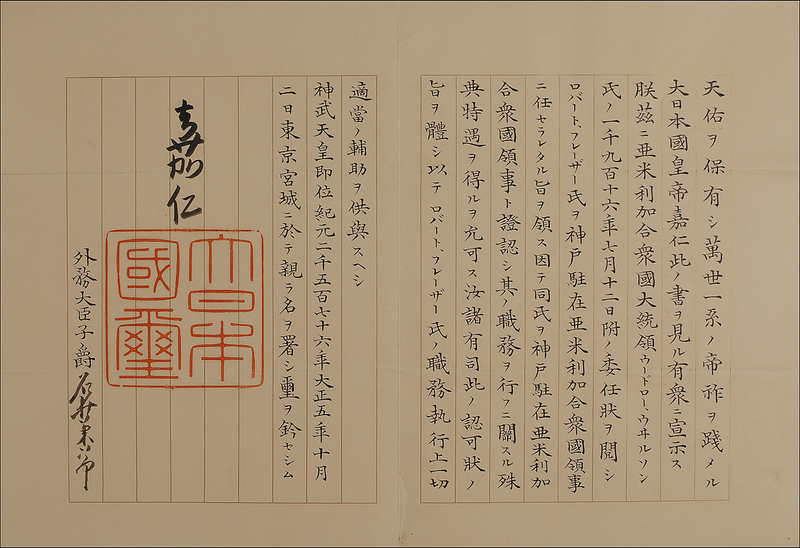 天佑ヲ保有シ萬世一系ノ帝祚ヲ踐メル
大日本國皇帝嘉仁此ノ書ヲ見ル有衆ニ宣示ス
朕茲ニ亜米利加合衆國大統領ウードロー、ウヰルソン
氏ノ一千九百十六年七月十二日附ノ委任狀ヲ閲シ
ロバート、フレーザー氏ヲ神戸駐在亜米利加合衆國領事
ニ任セラレタル旨ヲ領ス因テ同氏ヲ神戸駐在亜米利加
合衆國領事ト證認シ其ノ職務ヲ行フニ關スル殊
典特遇ヲ得ルヲ允可ス汝諸有司此ノ認可狀ノ
旨ヲ體シ以テロバート、フレーザー氏ノ職務執行上一切
適當ノ輔助ヲ供與スヘシ
神武天皇即位紀元二千五百七十六年大正五年十月
二日東京宮城ニ於テ親ラ名ヲ署シ璽ヲ鈐セシム
嘉仁
大日本
國璽
外務大臣子爵石井菊次郎